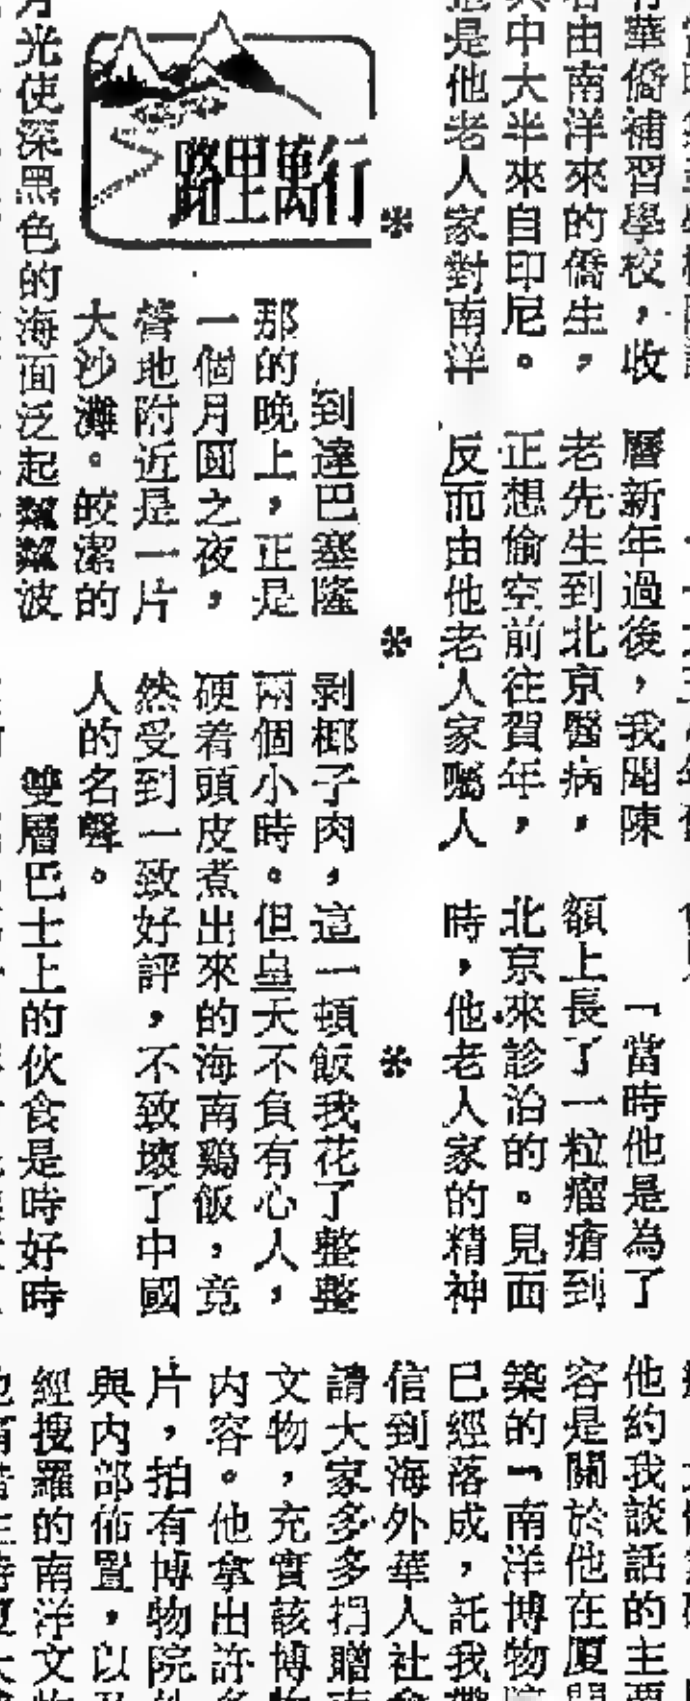 華僑補習學校，收
由南洋來的僑生，
中大半來自印尼。
是他老人家對南洋
曆新年過後，我聞陳
老先生到北京醫病，
正想偷空前往賀年，
反而由他老人家囑人
「當時他是為了
額上長了一粒瘤瘡到
北京來診治的。見面
時，他老人家的精神
※
※
※
行萬里路
到達巴塞隆
那的晚上，正是
一個月圓之夜，
營地附近是一片
大沙灘。皎潔的
光使深黑色的海面泛起粼粼波
剝椰子肉，這一頓飯我花了整整
兩個小時。但皇天不負有心人，
硬着頭皮煮出來的海南鷄飯，竟
然受到一致好評，不致壞了中國
人的名聲。
雙層巴士上的伙食是時好時
他約我談話的主要
容是關於他在廈
築的「南洋博物
已經落成，託我
信到海外華人社
請大家多多捐贈
文物，充實該博
內容。他拿出許
片，拍有博物院
與內部佈置，以
經搜羅的南洋文